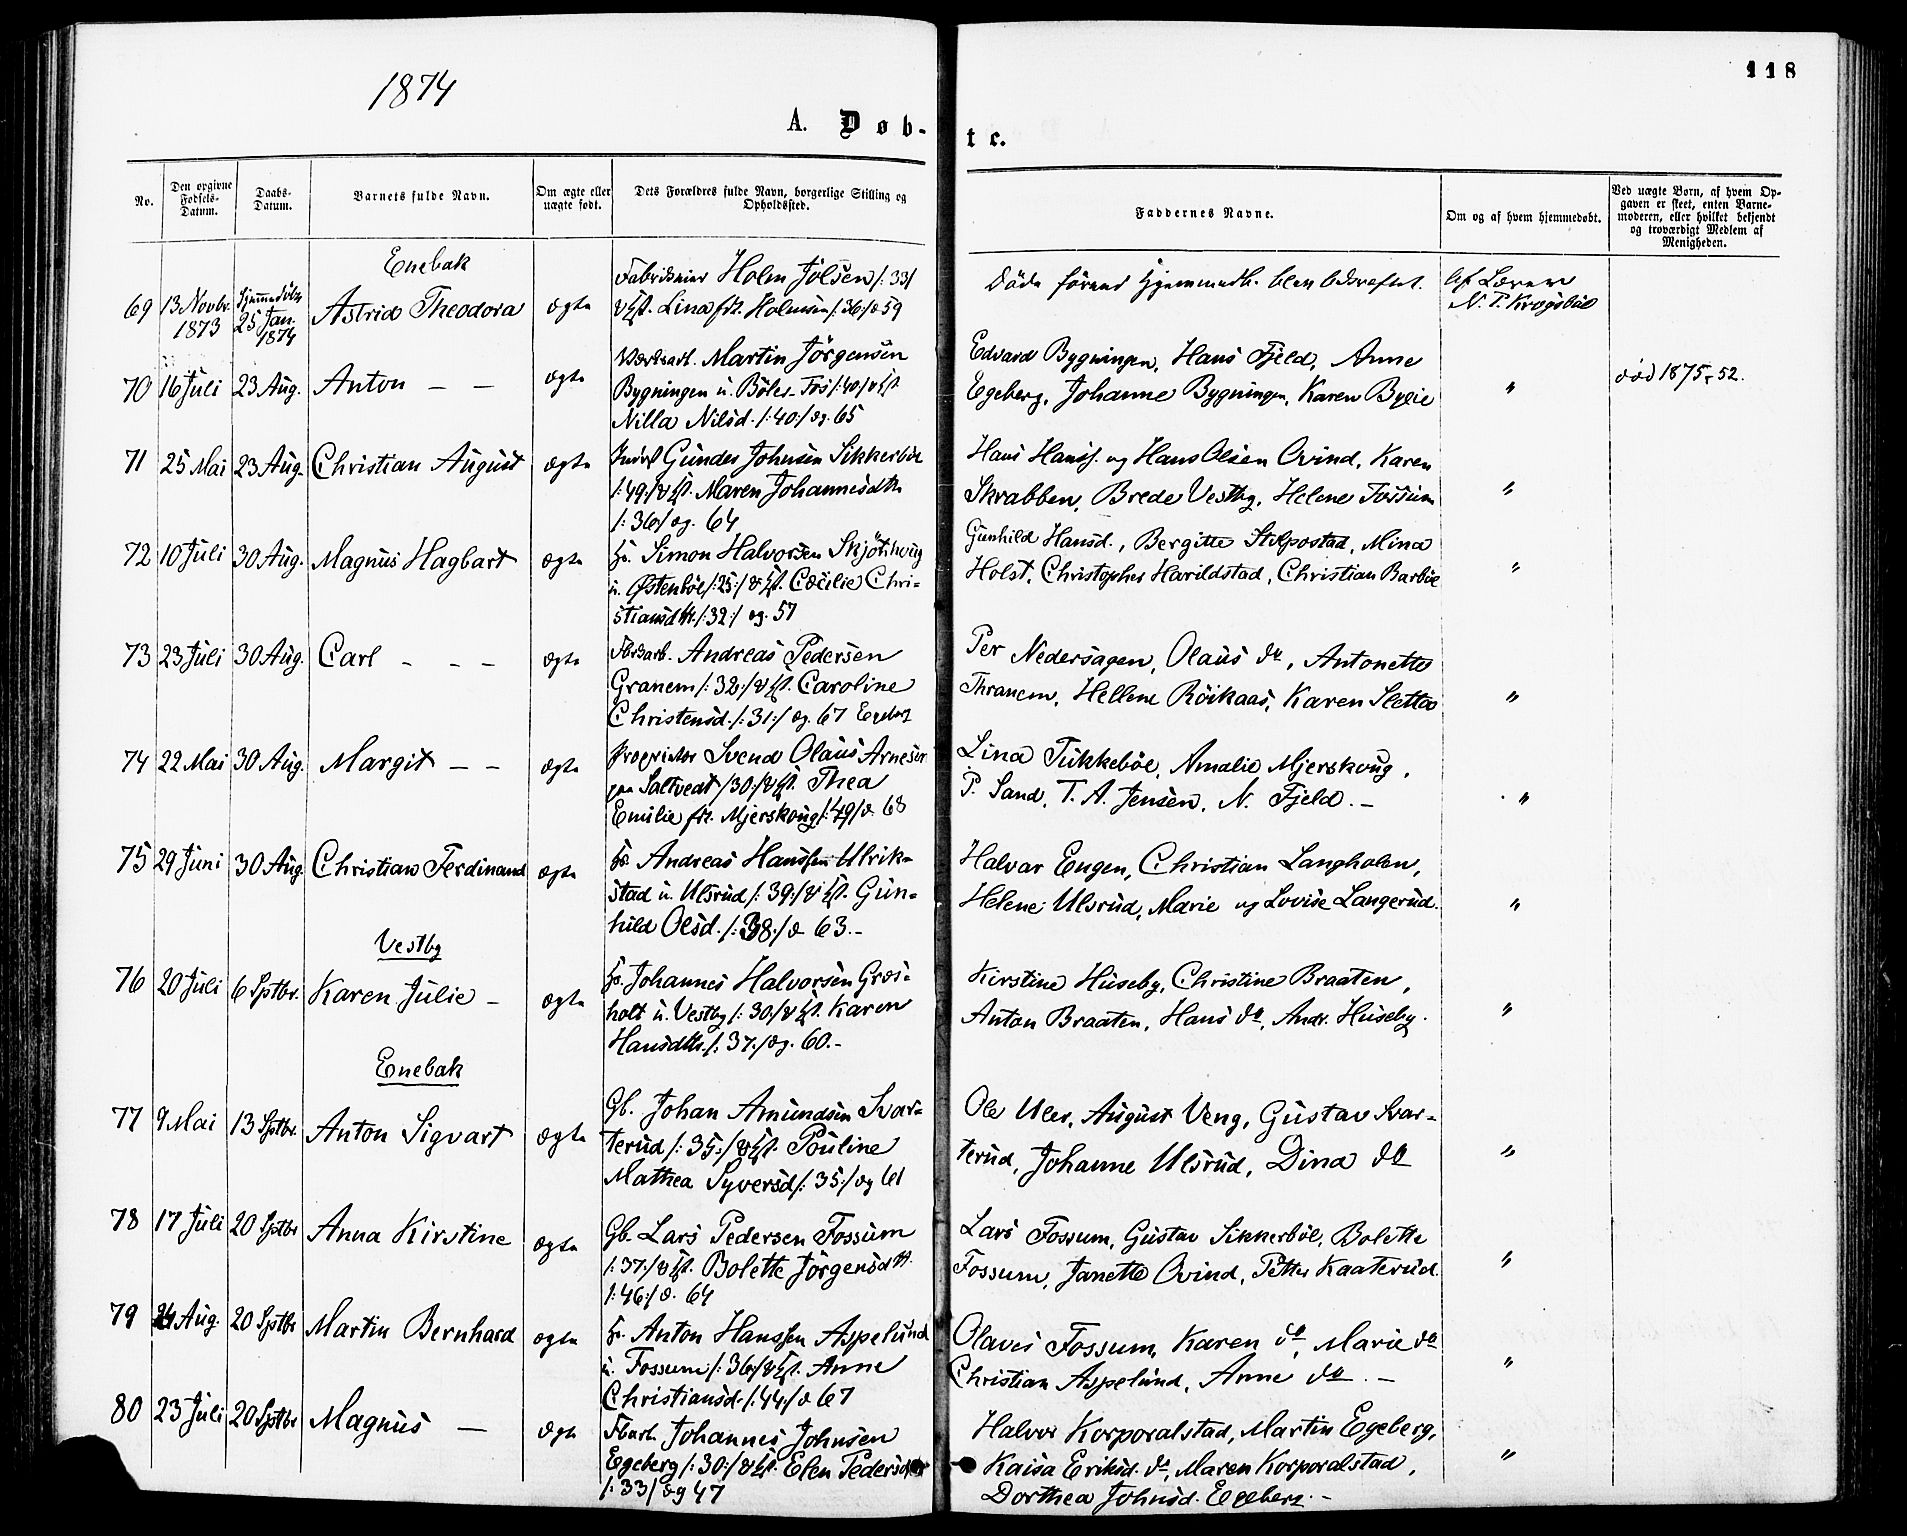 1874
118
A. Døb-
te.
No.
Den opgivne Fødsels-Datum.
Daabs-Datum.
Barnets fulde Navn.
Om ægte eller uægte født.
Dets Forældres fulde Navn, borgerlige Stilling og Opholdssted.
Faddernes Navne.
Om og af hvem hjemmedøbt.
Ved uægte Børn, af hvem Opgaven er skeet, enten Barnemoderen, eller hvilket bekjendt og troværdigt Medlem af Menigheden.
Enebak
69 13 Novbr. 1873 25 Jan. 1874 Astrid Theodora ægte
Holm Jølsen /:33/
Lina Holmsen /:36:/ 59
Døde førend Hjemmed.
af Læreren
N. P. Krogsbøl
70 16 Juli 23 Aug. Anton — — ægte
Martin Jörgensen
Bygningen u. Böler-Fos /:40:/
Nilla Nilsd. /:40:/ og. 65
Edvard Bygningen, Hans Fjeld, Anne
Egeberg, Johanne Bygningen, Karen
"
död 1875, 52.
71 25 Mai 23 Aug. Christian August ægte
Gunder Johnsen Sikkerböl
/:49:/ Maren Johannesdtr.
/:36:/ og. 64
Hans Hanss. og Hans Olsen Ovind, Karen
Skrabben, Brede Vestby, Helene Fossum
"
72 10 Juli 30 Aug. Magnus Hagbart ægte
Simon Halvorsen
u. Østenböl /:25:/ Cæcilie Chri-
stiansdtr. /:32:/ og. 57
Gunhild Hansd., Bergitte Stolpostad, Mina
Holst, Christopher Harildstad, Christian Barböl
"
73 23 Juli 30 Aug. Carl - - - ægte
Andreas Pedersen
Granem /:32:/ Caroline
Christensd. /:31:/ og. 67 Egeberg
Per Nedersagen, Olaus do, Antonette
Thranem, Hellene Röikaas, Karen Sletta
"
74 22 Mai 30 Aug. Margit — — ægte
Proprietær Svend Olaus Arnesen
paa Saltvedt /30:/ Thea
Emilie f. Mjerskoug /:49/ 68
Lina Tukkeböl, Amalie Mjerskoug,
P. Sand, T. A. Jensen, N. Fjeld. —
"
75 29 Juni 30 Aug. Christian Ferdinand ægte
Andreas Hanssen Ulrik-
stad u. Ulsrud /:39:/ Gun-
hild Olsd. /:38:/ 63.-
Halvar Engen, Christian Langholen,
Helene Ulsrud, Marie og Lovise Langerud.
"
Vestby
76 20 Juli 6 Sptbr. Karen Julie - ægte
Johannes Halvorsen Græs-
holt u. Vestby /:30:/ Karen
Hansdtr. /:37:/ og. 60.-
Kirstine Huseby, Christine Braaten,
Anton Braaten, Hans do, Andr. Huseby.
"
Enebak
77 9 Mai 13 Sptbr. Anton Sigvart ægte
Gb. Johan Amundsen Svar-
terud /:35:/ Pouline
Mathea Syversd /:35:/ og 61
Ole Uler, August Veng, Gustav Svar-
terud, Johanne Ulsrud, Dina do
"
78 17 Juli 20 Sptbr Anna Kirstine ægte
Gb. Lars Pedersen Fossum
/:37:/ Bolette Jörgensdtt.
/:46:/ 64
Lars Fossum, Gustav Sikkerböl, Bolette
Fossum, Janette Ovind, Petter Kaaterud.
"
79 24 Aug. 20 Sptbr Martin Bernhard ægte
Anton Hanssen Aspelund
u. Fossum /:36:/ Anne
Christiansd. /:44:/ 67
Olaves Fossum, Karen do, Marie do
Christian Aspelund, Anne do. —
"
80 23 Juli 20 Sptbr Magnus — ægte
Johannes Johnsen
Egeberg /:30:/ Elen Pedersd
/:33/ og 47
Halvor Korporalstad, Martin Egeberg,
Kaisa Eriksd. do, Maren Korporalstad,
Dorthea Johnsd. Egeberg. -
"